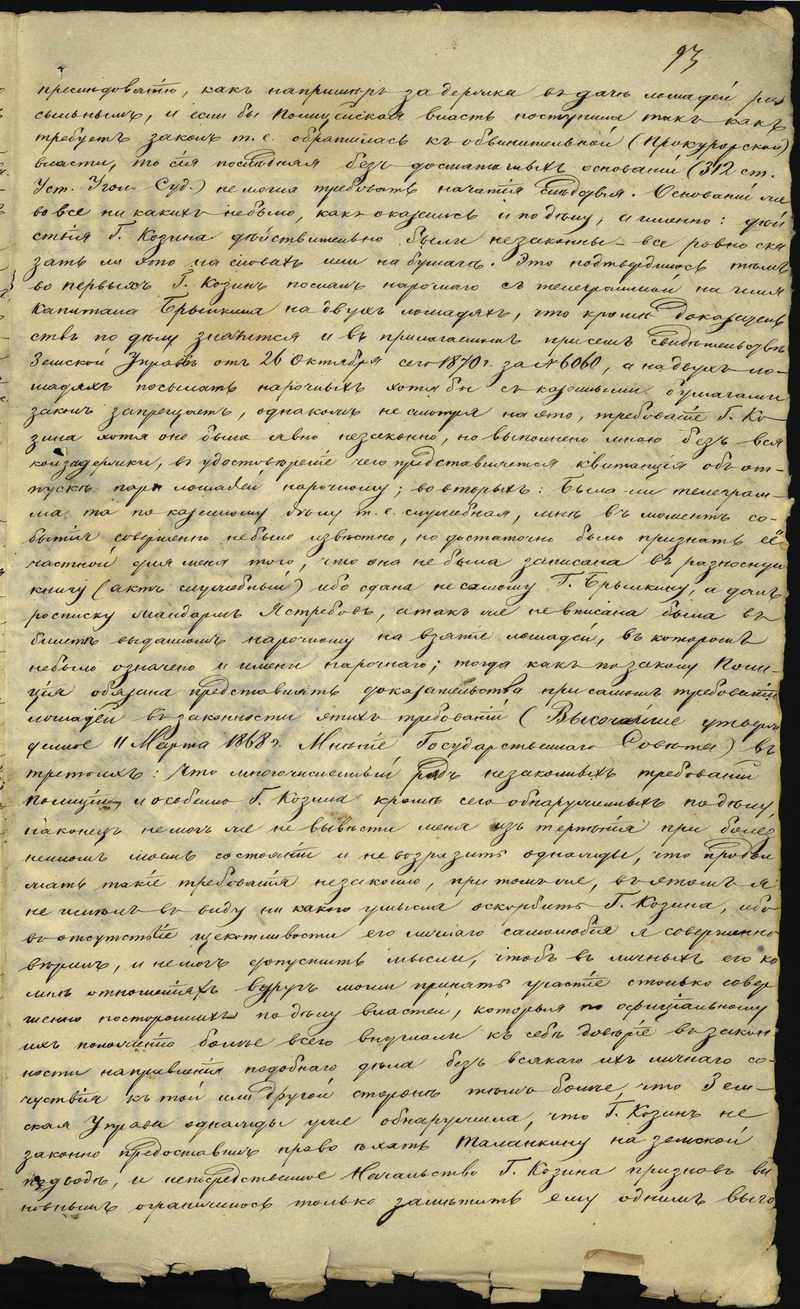 93
преследованію, какъ напримѣръ задержка въ дачѣ лошадей раз
сыльнымъ, и если бы Полицейская власть поступила такъ какъ
требуетъ законъ т. е. обратилась къ обвинительной (Прокурорской)
власти, то сія послѣдняя безъ достаточныхъ основаній (312 ст.
Уст. Угол. Суд.) не могла требовать начатія слѣдствія. Основаній же
вовсе ни какихъ небыло, какъ оказалось и по дѣлу, а именно: дѣй
ствія Г. Козина дѣйствительно были незаконны – все ровно ска
зать ли это на словахъ или на бумагѣ. Это подтвердилось тѣмъ
во первыхъ Г. Козинъ послалъ нарочнаго съ телеграммой на имя
Капитана Брылкина на двухъ лошадяхъ, что кромѣ доказательствъ
ствъ по дѣлу значится и въ прилагаемомъ при семъ свидѣтельствѣ
Земской Управы отъ 26 Октября сего 1870 г. за № 6060, а на двухъ ло-
шадяхъ посылать нарочныхъ хотя бы съ казенными бумагами
законъ запрещаетъ, однакожъ не смотря на это, требованіе Г. Ко
зина хотя оно было явно незаконно, но выполнено мною безъ вся
кой задержки, въ удостовѣреніе чего представляется квитанція объ от-
пускѣ пары лошадей нарочному; во вторыхъ: Была-ли телеграм-
ма та по казенному дѣлу т. е. служебная, мнѣ въ моментъ со-
бытія совершенно небыло извѣстно, но достаточно было признать её
частной для меня того, что она не была записана въ разносную
книгу (актъ служебный) ибо сдана не самому Г. Брылкину, а далъ
росписку жандармъ Ястребовъ, а такъ же не вписана была въ
билетъ выданномъ нарочному на взятіе лошадей, въ которомъ
небыло означено и имени нарочнаго; тогда какъ по закону Поли-
ція обязана представлять доказательства при самомъ требованіи
лошадей въ законности этихъ требованій (Высочайше утверж
денное 11 Марта 1868 г. Мнѣніе Государственнаго Совѣта) въ
третьихъ: Что многочисленный рядъ незаконныхъ требованій
полиціи, и особенно Г. Козина кромѣ сего обнаруженныхъ по дѣлу,
наконецъ не могъ же не вывести меня изъ терпѣнія при болѣз
ненномъ моемъ состояніи и не возразить однажды, что продол
жать такіе требованія незаконно, при томъ же, въ этомъ я
не имѣлъ въ виду ни какого умысла оскорбить Г. Козина, ибо
въ отсутствіе щекотливости его личнаго самолюбія я совершенно
вѣрилъ, и не могъ допустить мысли, чтобъ въ личныхъ его ко
мнѣ отношеніяхъ вдругъ могли принять участіе столько совер
шенно постороннихъ по дѣлу властей, которыя по официальному
ихъ положенію более всего внушали къ себѣ довѣріе въ закон
ности направленія подобнаго дѣла безъ всякаго ихъ личнаго со-
чуствія къ той или другой сторонѣ тѣмъ более, что Зем-
ская Управа однажды уже обнаружила, что Г. Козинъ не
законно предоставилъ право ѣхать Маланкину на земской
подводѣ, и непосредственное Начальство Г. Козина признавъ ви
новнымъ ограничилось только замѣтить ему однимъ выго